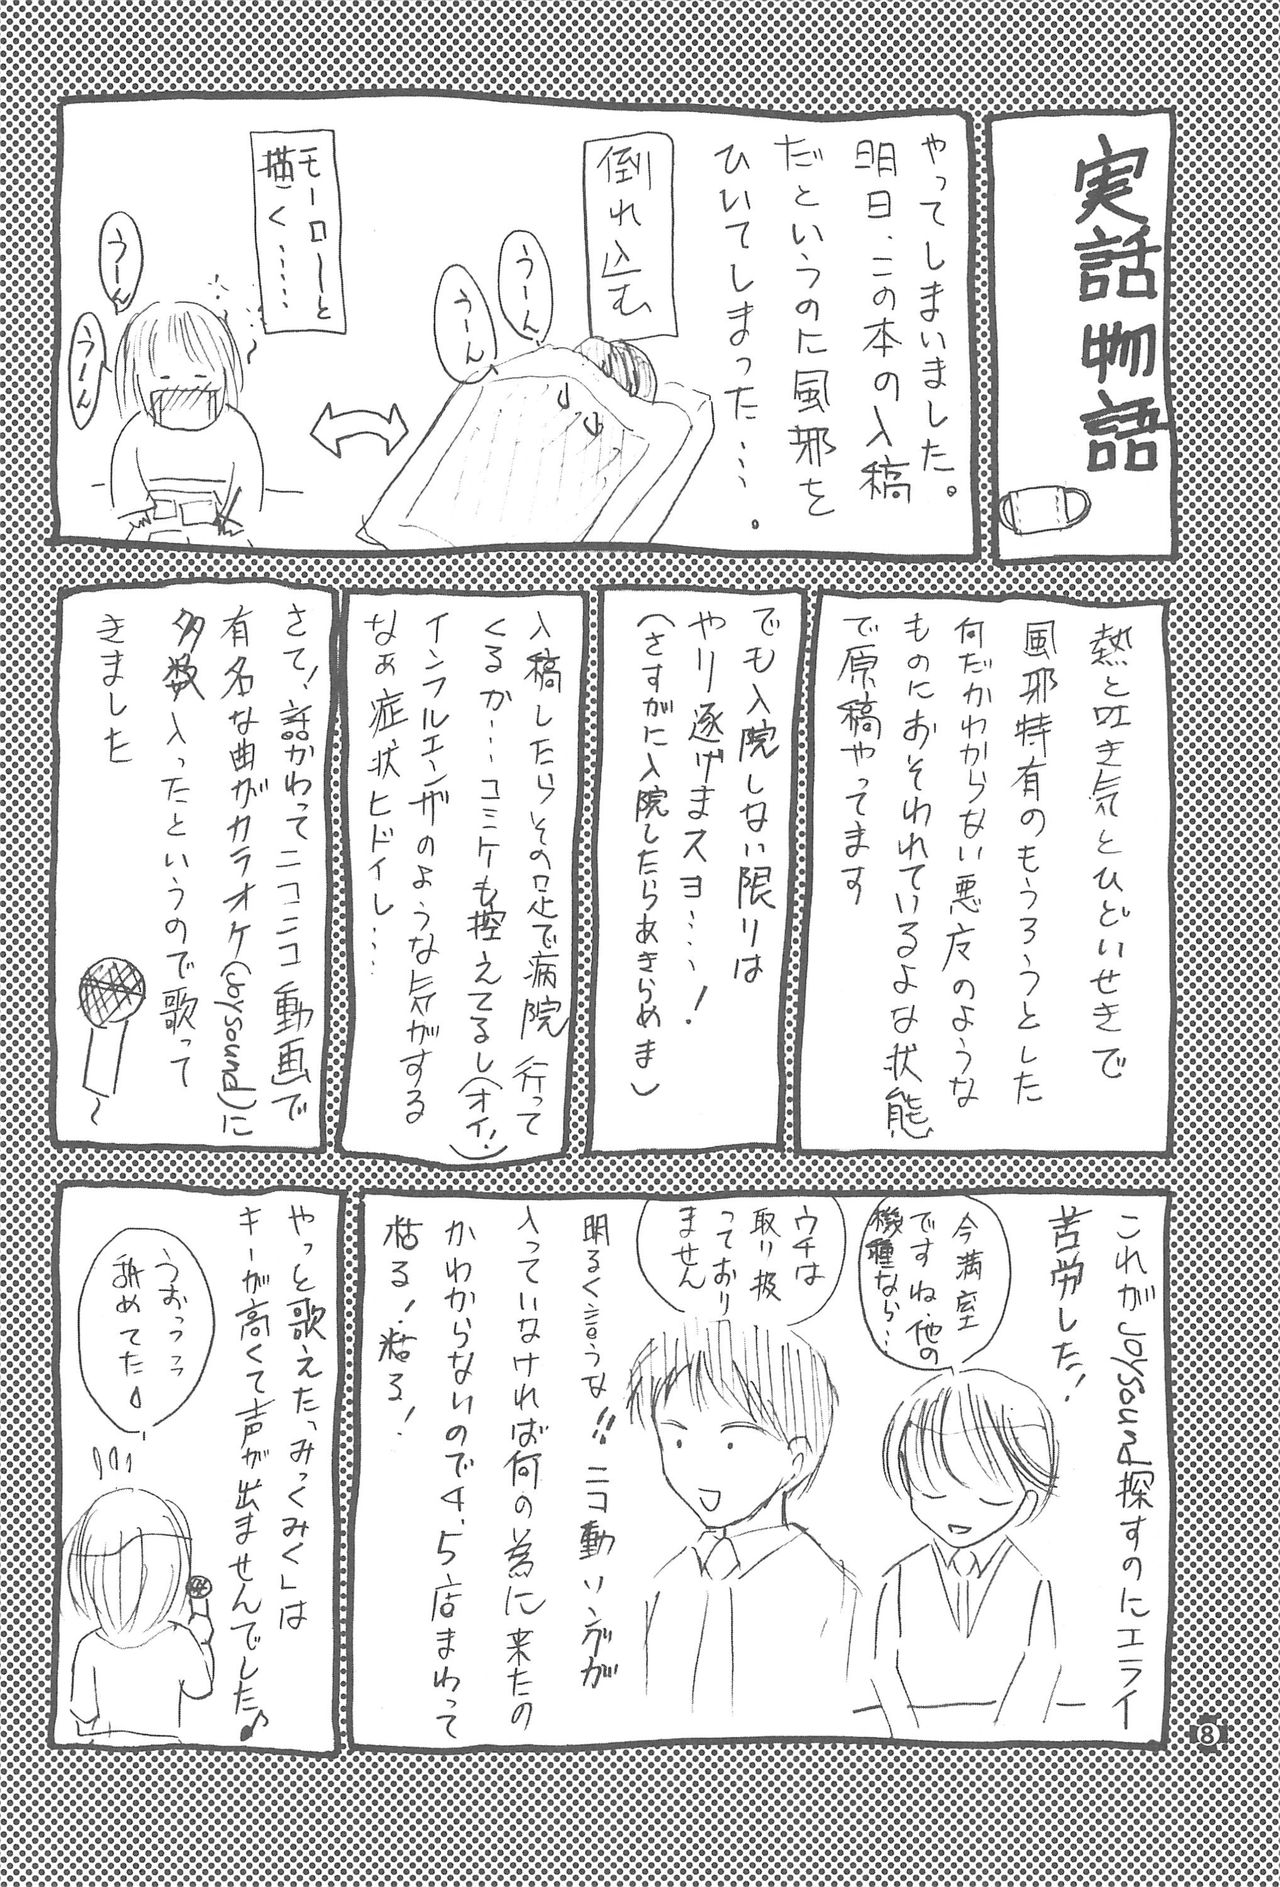 実話物語
やってしまいました。
明日、この本の入稿
だというのに風邪を
ひいてしまった・・・・。
倒れ込む
うーん
うーん
モーローと
描く・・・・・
うーん
うーん
熱と吐き気とひどいせきで
風邪特有のもうろうとした
何だかわからない悪夜のような
ものにおそわれているよな状態
で原稿やってます
でも入院しない限りは
やり遂げまスヨ・・・・!
(さすがに入院したらあきらめま)
入稿したらその足で病院行って
くるか・・・コミケも控えてるし(オイ!!)
インフルエンザのような気がする
なぁ症状ヒドイし・・・・
さて!話かわってニコニコ動画で
有名な曲がカラオケ(Joysound)に
多数入ったというので歌って
きました
これがJoysound探すのにエライ
苦労した!
今満室
ですね、他の
機種なら・・・
ウチは
取り扱
っており
ません
明るく言うな!!ニコ動ソングが
入っていなければ何の為に来たの
かわからないので4、5店まわって
粘る!粘る!
やっと歌えたっみっくみく」は
キーが高くて声が出ませんでした♪
うおっつっ
舐めてた
8